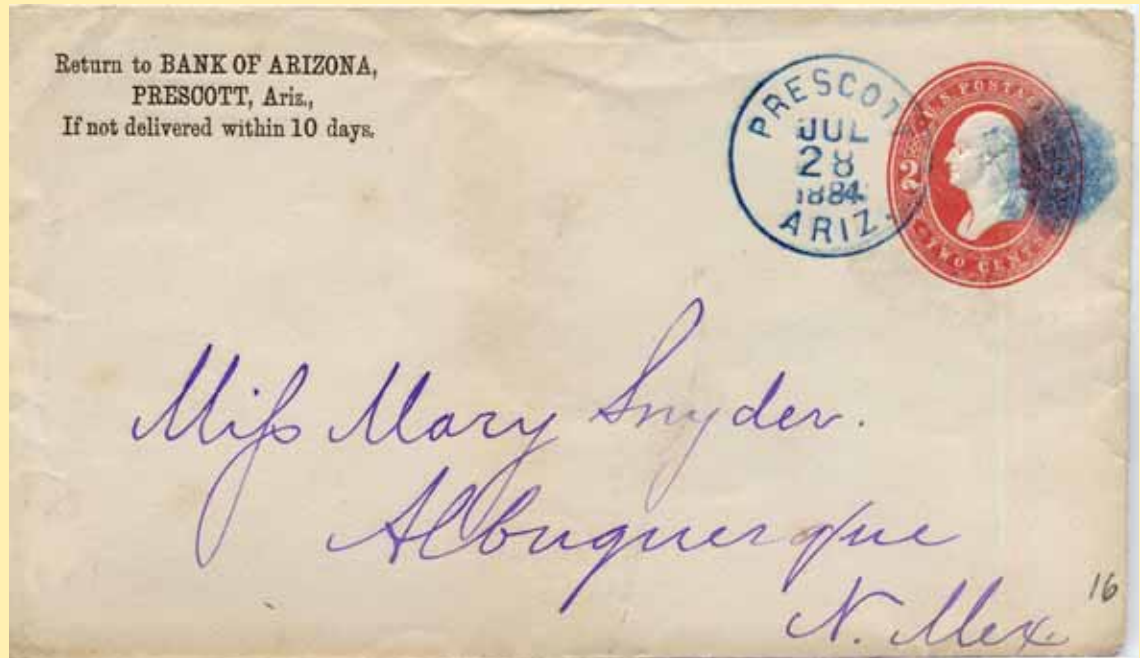 Return to BANK OF ARIZONA,
PRESCOTT, Ariz.,
If not delivered within 10 days.
PRESCOTT
JUL
28
1884
ARIZ.
U.S. POSTAGE
2
TWO CENTS
Miſs Mary Snyder.
Albuquerque
N. Mex.
16